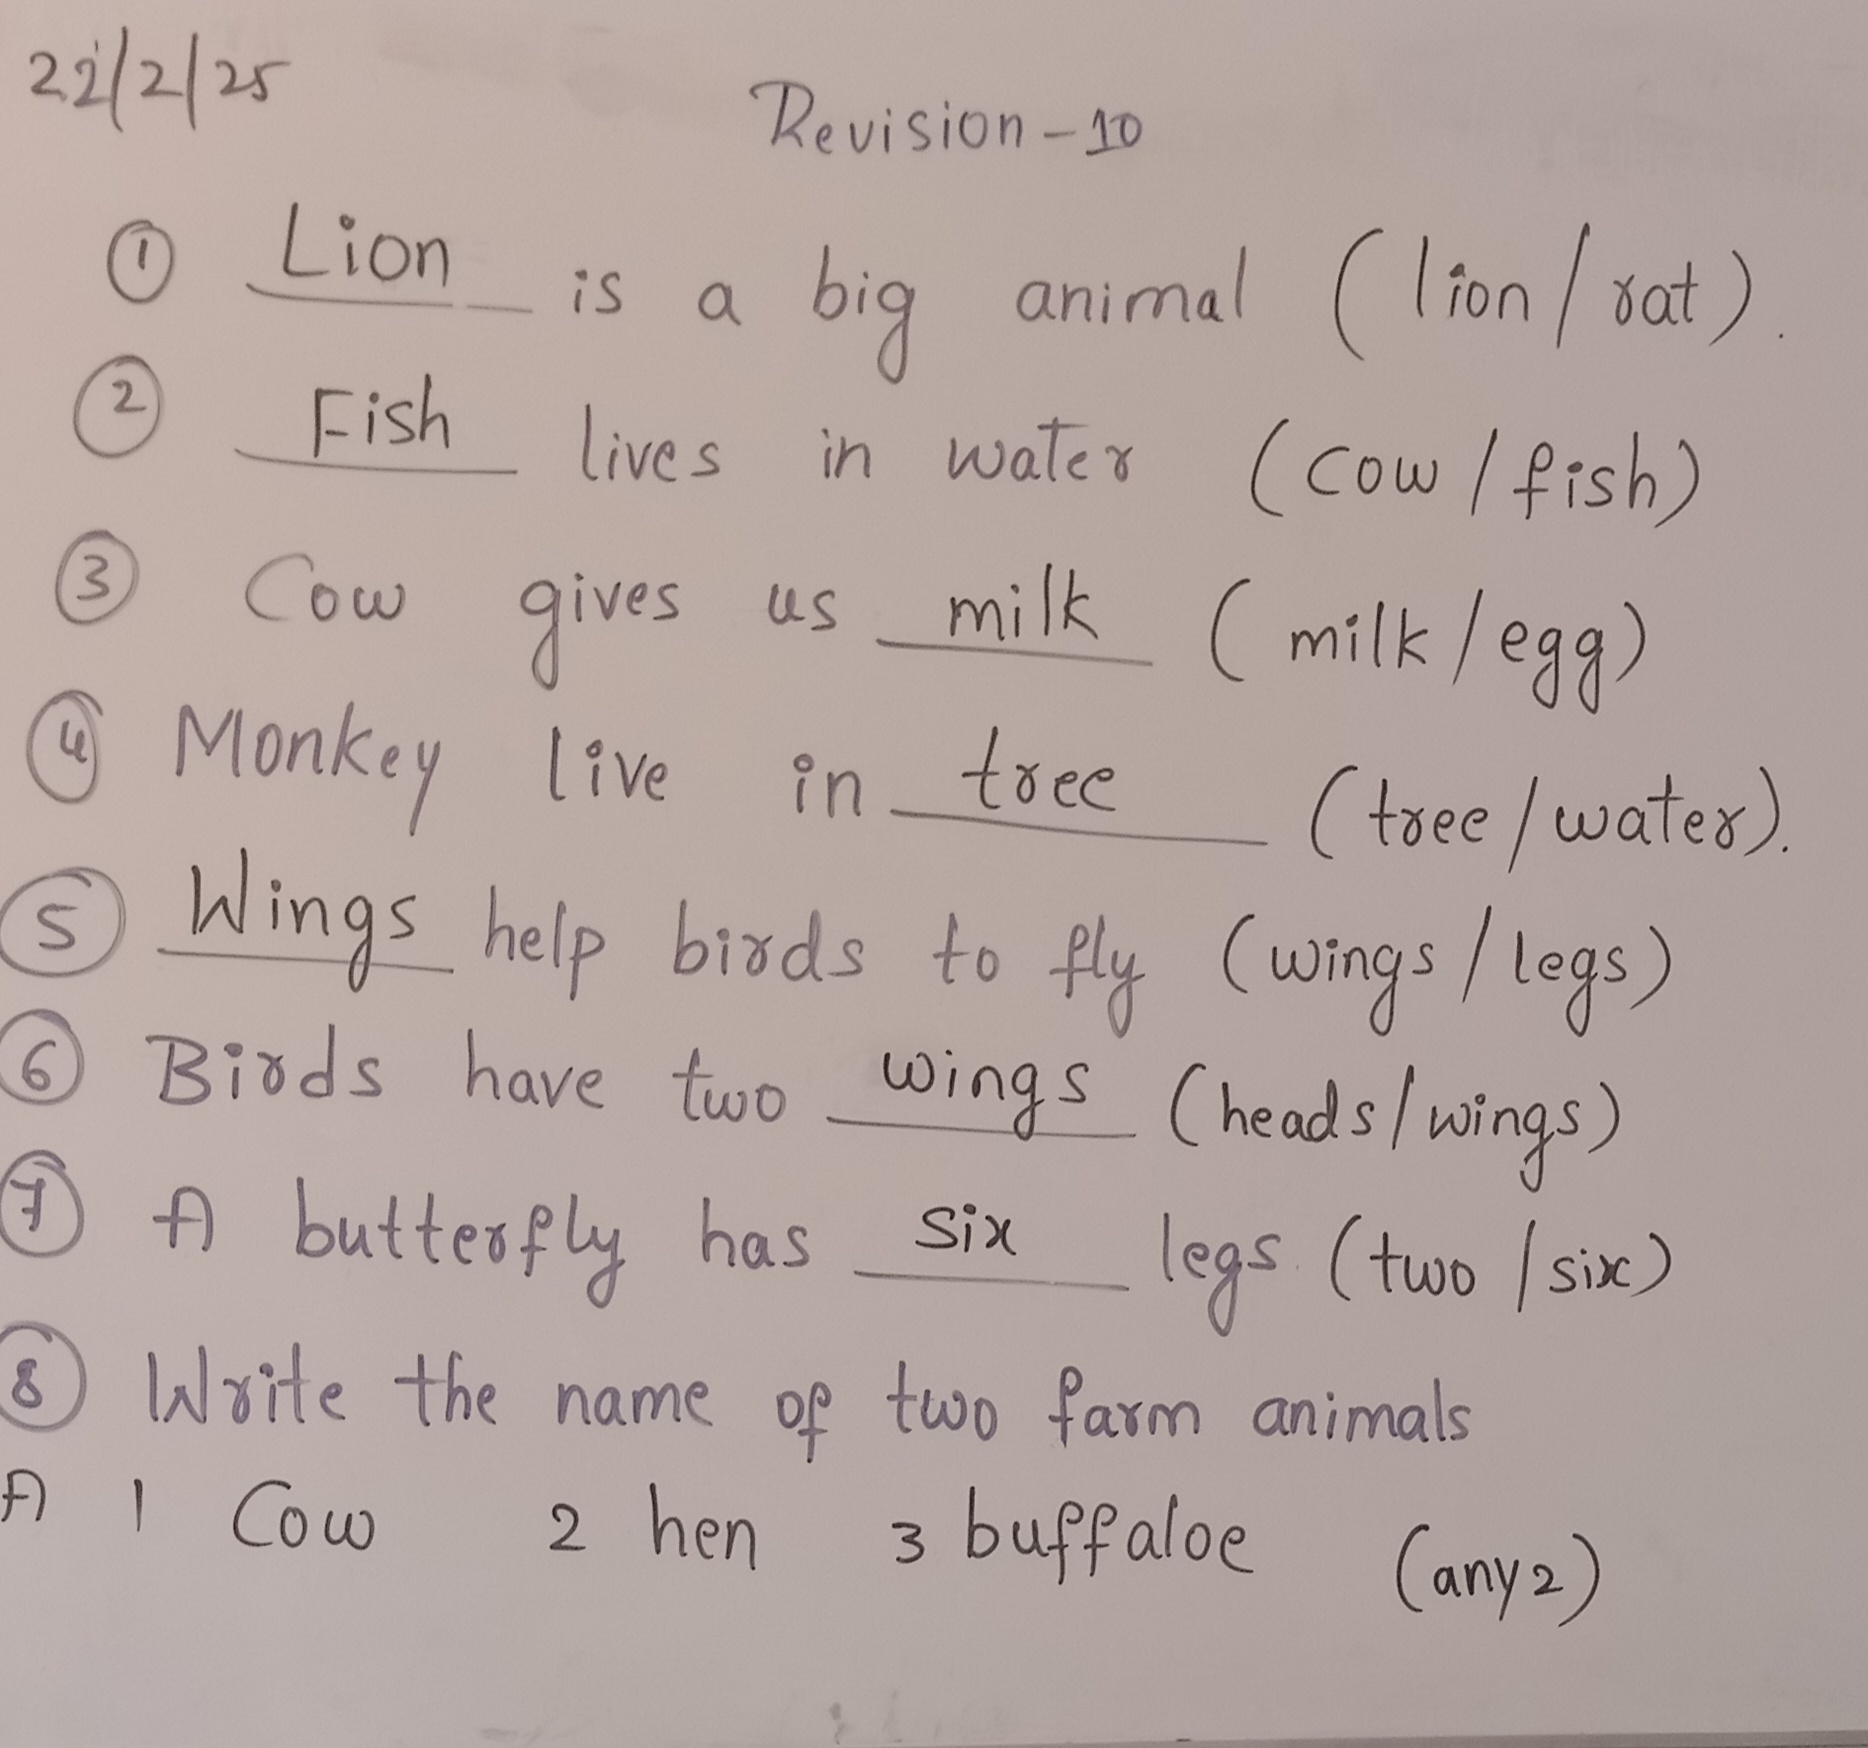 22/2/25
Revision-10
① Lion is a big animal (lion/rat).
② Fish lives in water (cow/fish)
③ Cow gives us milk (milk/egg)
④ Monkey live in tree (tree/water).
⑤ Wings help birds to fly (wings/legs)
⑥ Birds have two wings (heads/wings)
⑦ A butterfly has six legs. (two/six)
⑧ Write the name of two farm animals
A 1 Cow 2 hen 3 buffaloe (any 2)